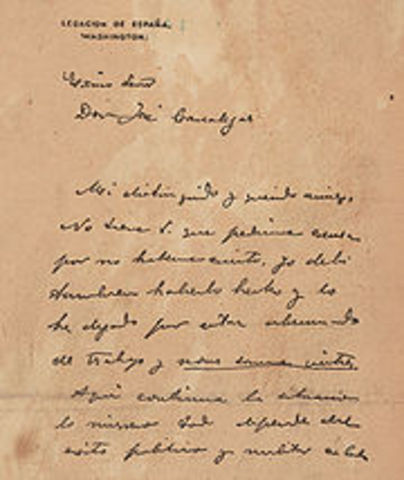 LEGACION DE ESPAÑA.
WASHINGTON.
Exmo Señor
Don José Canalejas
Mi distinguido y querido amigo,
No tiene V. que pedirme excusas
por no haberme escrito, yo debi
tambien haberlo hecho y lo
he dejado por estar abrumado
de trabajo y nous sommes quittes.
Aqui continua la situacion
lo mismo. Todo depende del
exito politico y militar en Cuba